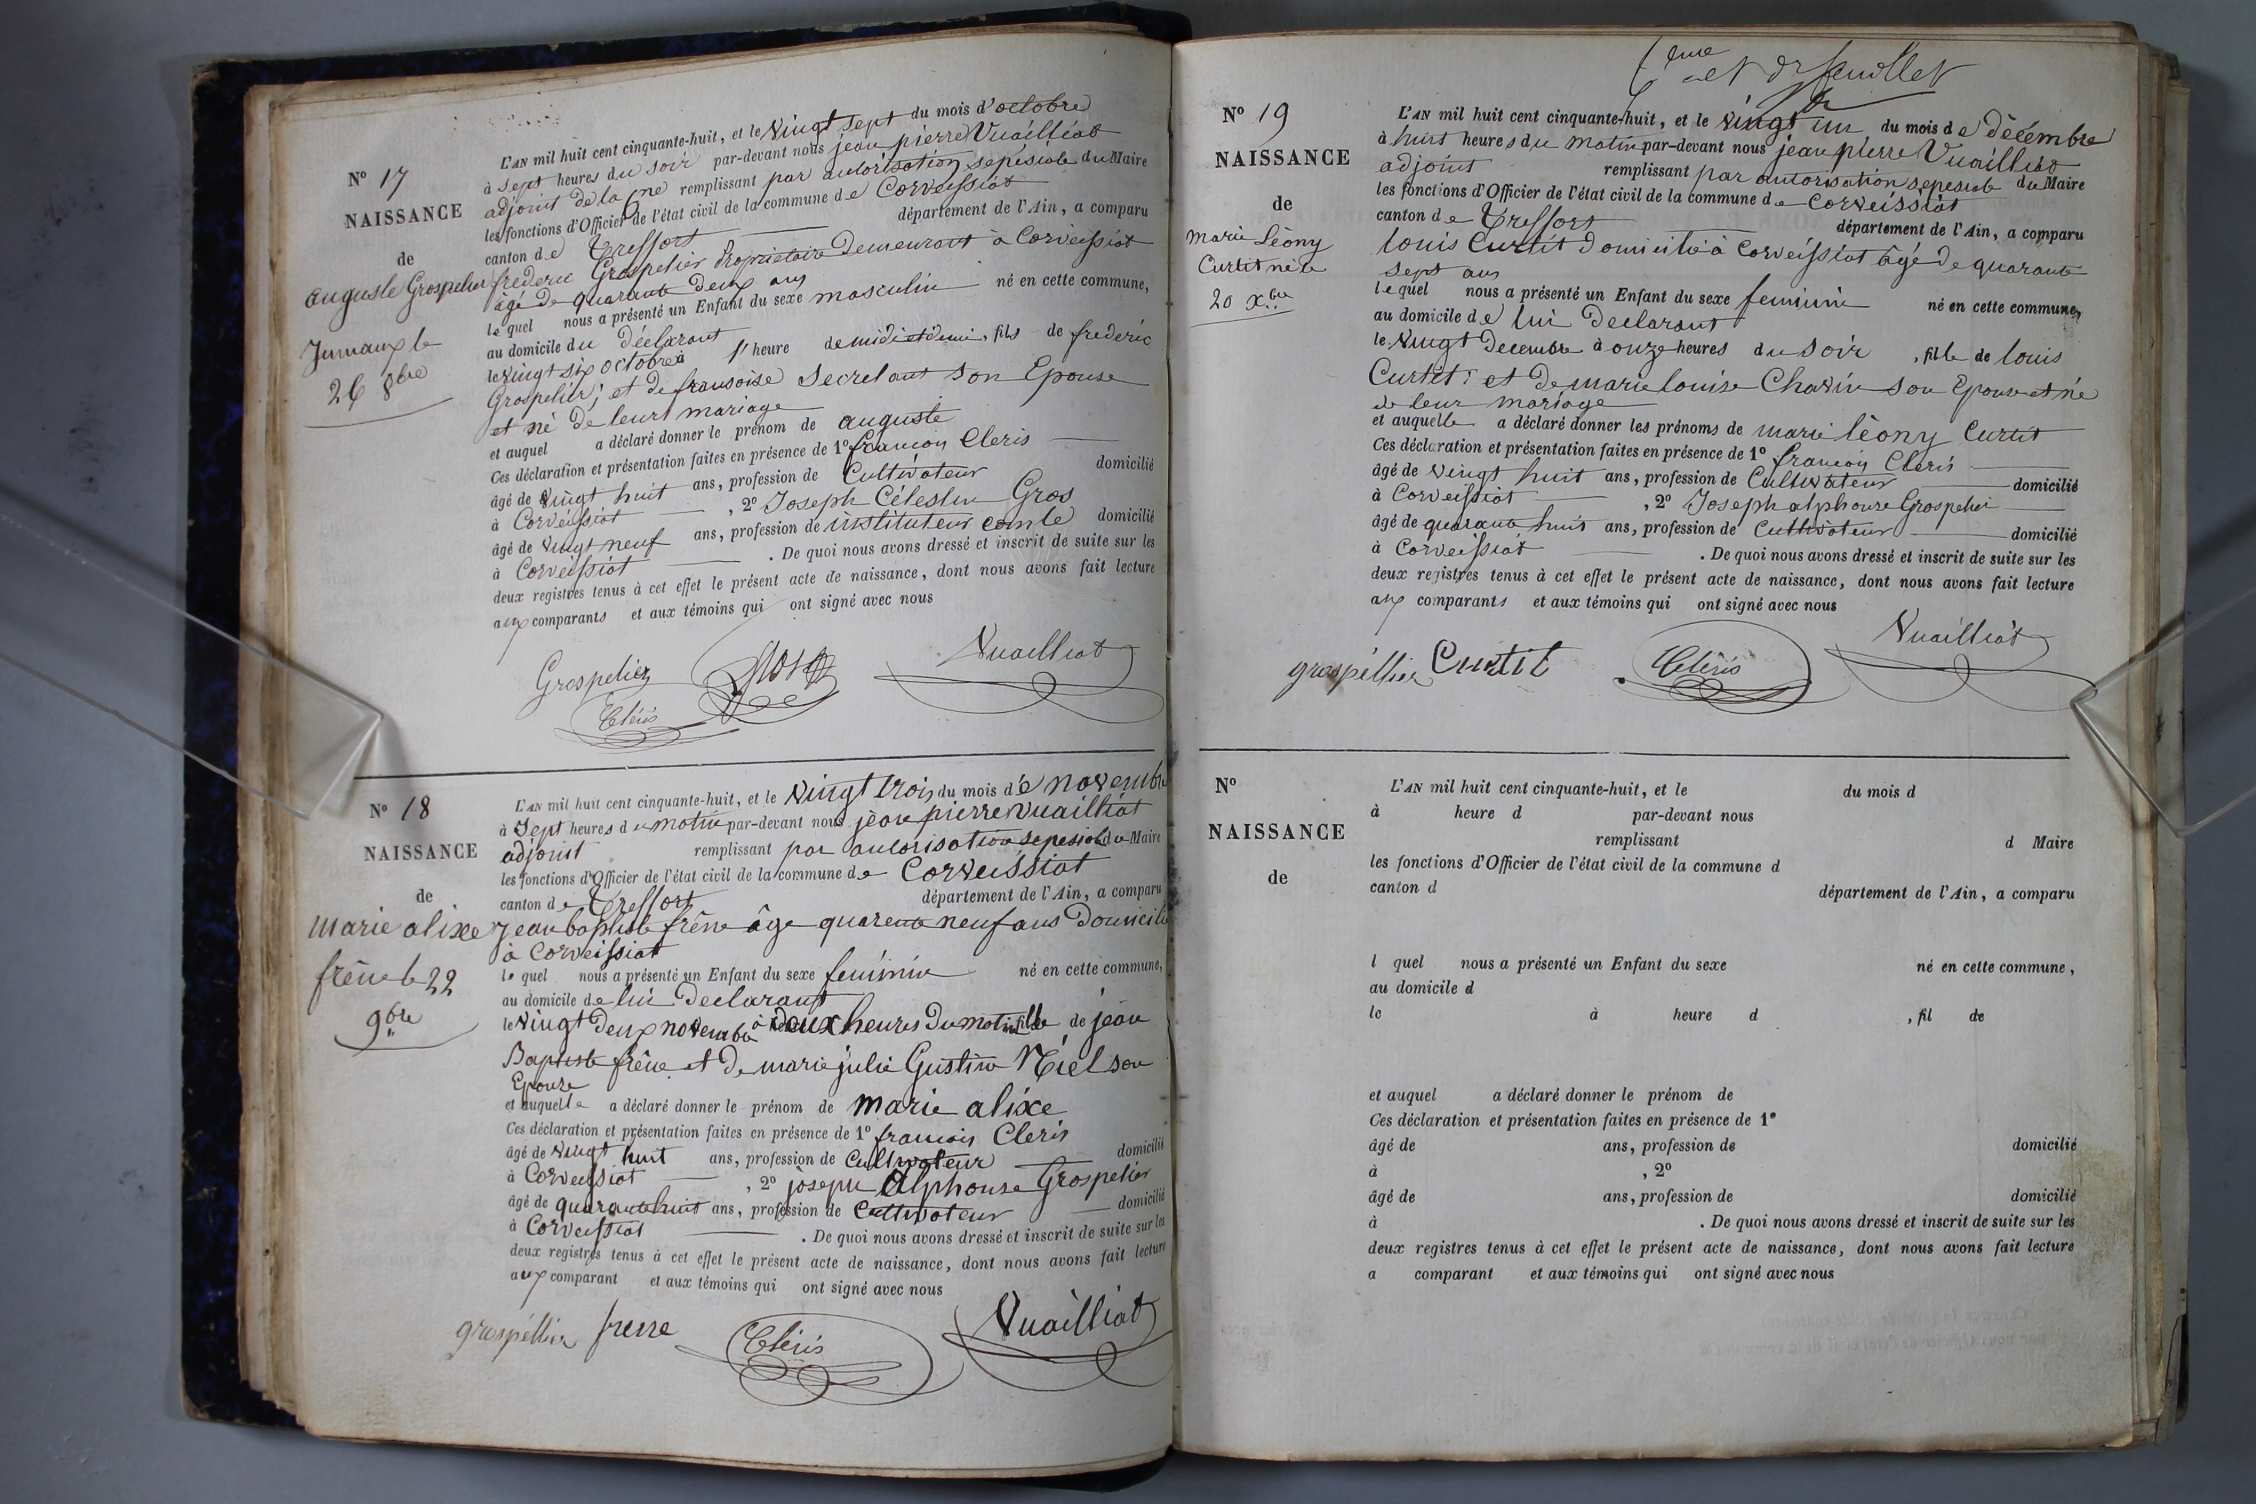 N° 17
NAISSANCE
de
auguste Grospelier
Jumaux le
26 8bre
L'AN mil huit cent cinquante-huit, et le vingt sept du mois d'octobre
à sept heures du soir par-devant nous jean pierre Vuailliat
adjoint de la Cne remplissant par autorisation sepésiale du Maire
les fonctions d'Officier de l'état civil de la commune de Corveissiat
canton de Treffort département de l'Ain, a comparu
frederic Grospelier Propriétaire Demeurant à Corveissiat
âgé de quarante deux ans
le quel nous a présenté un Enfant du sexe masculin né en cette commune,
au domicile du Déclarant
le vingt six octobre à l'heure de midi et demi, fils de frederic
Grospelier; et de fransoise Secretant son Epouse
et né de leur mariage
et auquel a déclaré donner le prénom de auguste
Ces déclaration et présentation faites en présence de 1° francois Cleris
âgé de vingt huit ans, profession de Cultivateur domicilié
à Corveissiat, 2° Joseph Célestin Gros
âgé de vingt neuf ans, profession de instituteur comle domicilié
à Corveissiat. De quoi nous avons dressé et inscrit de suite sur les
deux registres tenus à cet effet le présent acte de naissance, dont nous avons fait lecture
aux comparants et aux témoins qui ont signé avec nous
Grospelier Gros Vuailliat
Cléris
N° 18
NAISSANCE
de
marie alixe
frêne le 22
9bre
L'AN mil huit cent cinquante-huit, et le vingt trois du mois de novembre
à Sept heures du matin par-devant nous jean pierre Vuailliat
adjoint remplissant par autorisation sepesiale du Maire
les fonctions d'Officier de l'état civil de la commune de Corveissiat
canton de Treffort département de l'Ain, a comparu
Jean baptiste frêne âge quarente neuf ans Domicilié
à Corveissiat
le quel nous a présenté un Enfant du sexe feminin né en cette commune,
au domicile de lui Declarant
le vingt deux novembre à deux heures du matin fille de jean
Baptiste frêne et de marie julie Gustine Niel son
Epouse
et auquelle a déclaré donner le prénom de marie alixe
Ces déclaration et présentation faites en présence de 1° francois Cleris
âgé de vingt huit ans, profession de Cultivateur domicilié
à Corveissiat, 2° joseph Alphonse Grospelier
âgé de quarante huit ans, profession de Cultivateur domicilié
à Corveissiat. De quoi nous avons dressé et inscrit de suite sur les
deux registres tenus à cet effet le présent acte de naissance, dont nous avons fait lecture
aux comparant et aux témoins qui ont signé avec nous
grospéllier frene Cléris Vuailliat
6eme et dr feuillet
N° 19
NAISSANCE
de
marie Léony
Curtit né le
20 Xbre
L'AN mil huit cent cinquante-huit, et le vingt un du mois de décembre
à huit heures du matin par-devant nous jean pierre Vuailliat
adjoint remplissant par autorisation sepesiale du Maire
les fonctions d'Officier de l'état civil de la commune de Corveissiat
canton de Treffort département de l'Ain, a comparu
louis Curtit Domicilié à Corveissiat âgé de quarante
sept ans
lequel nous a présenté un Enfant du sexe feminin né en cette commune,
au domicile de lui Declarant
le vingt Decembre à onze heures du soir, fille de louis
Curtit: et de marie louise Chavin son Epouse et né
de leur mariage
et auquelle a déclaré donner les prénoms de marie lèony Curtit
Ces déclaration et présentation faites en présence de 1° francois Cleris
âgé de vingt huit ans, profession de Cultivateur domicilié
à Corveissiat, 2° Joseph alphonse Grospelier
âgé de quarante huit ans, profession de Cultivateur domicilié
à Corveissiat. De quoi nous avons dressé et inscrit de suite sur les
deux registres tenus à cet effet le présent acte de naissance, dont nous avons fait lecture
aux comparants et aux témoins qui ont signé avec nous
grospéllier Curtit Cléris Vuailliat
N°
NAISSANCE
de
L'AN mil huit cent cinquante-huit, et le du mois d
à heure d par-devant nous
remplissant d Maire
les fonctions d'Officier de l'état civil de la commune d
canton d département de l'Ain, a comparu
l quel nous a présenté un Enfant du sexe né en cette commune,
au domicile d
le à heure d, fil de
et auquel a déclaré donner le prénom de
Ces déclaration et présentation faites en présence de 1°
âgé de ans, profession de domicilié
à, 2°
âgé de ans, profession de domicilié
à. De quoi nous avons dressé et inscrit de suite sur les
deux registres tenus à cet effet le présent acte de naissance, dont nous avons fait lecture
a comparant et aux témoins qui ont signé avec nous